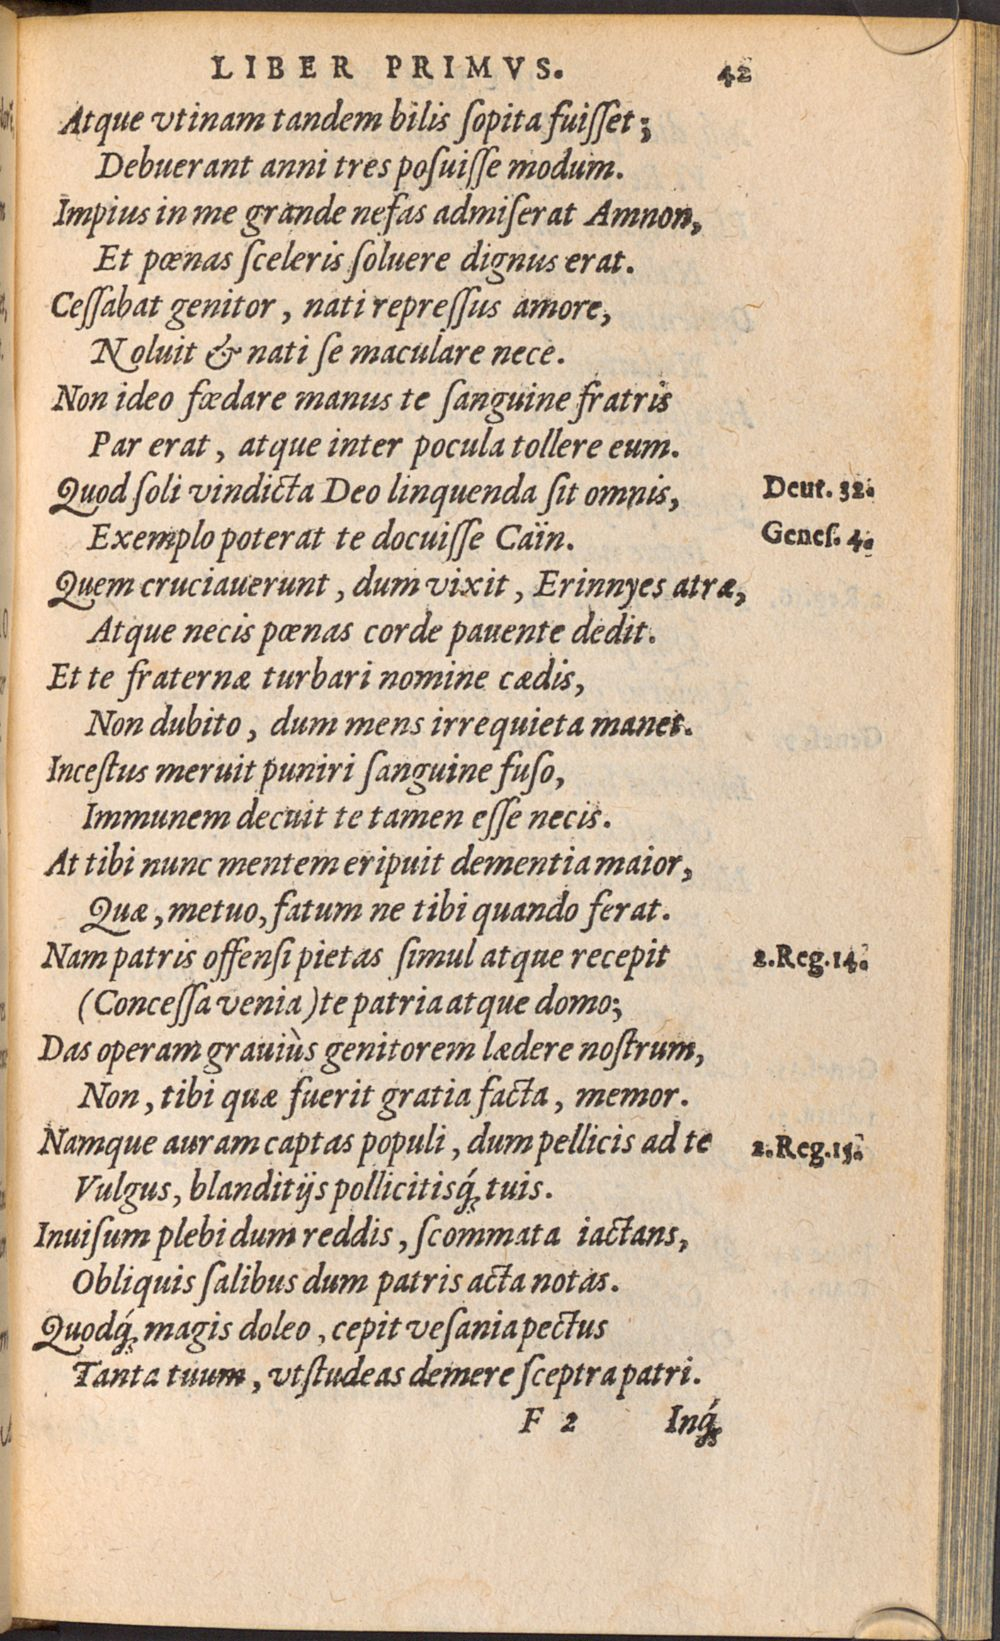 LIBER PRIMVS. 42
Atque vtinam tandem bilis ſopita fuiſſet;
Debuerant anni tres poſuiſſe modum.
Impius in me grande nefas admiſerat Amnon,
Et pœnas ſceleris ſoluere dignus erat.
Ceſſabat genitor, nati repreſſus amore,
Noluit & nati ſe maculare nece.
Non ideo fœdare manus te ſanguine fratris
Par erat, atque inter pocula tollere eum.
Quod ſoli vindicta Deo linquenda ſit omnis, Deut. 32.
Exemplo poterat te docuiſſe Caïn. Geneſ. 4.
Quem cruciauerunt, dum vixit, Erinnyes atræ,
Atque necis pœnas corde pauente dedit.
Et te fraternæ turbari nomine cædis,
Non dubito, dum mens irrequieta manet.
Inceſtus meruit puniri ſanguine fuſo,
Immunem decuit te tamen eſſe necis.
At tibi nunc mentem eripuit dementia maior,
Quæ, metuo, fatum ne tibi quando ferat.
Nam patris offenſi pietas ſimul atque recepit 2.Reg.14.
(Conceſſa venia) te patria atque domo;
Das operam grauiùs genitorem lædere noſtrum,
Non, tibi quæ fuerit gratia facta, memor.
Namque auram captas populi, dum pellicis ad te 2.Reg.15.
Vulgus, blanditijs pollicitisq́; tuis.
Inuiſum plebi dum reddis, ſcommata iactans,
Obliquis ſalibus dum patris acta notas.
Quodq́; magis doleo, cepit veſania pectus
Tanta tuum, vt ſtudeas demere ſceptra patri.
F 2 Inq́;